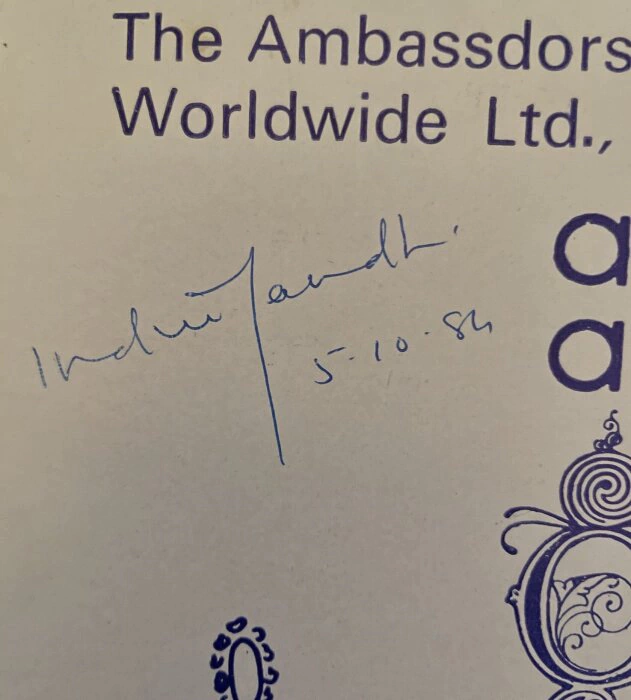 The Ambassdors
Worldwide Ltd.,
a
Indira Gandhi
5-10-84
a